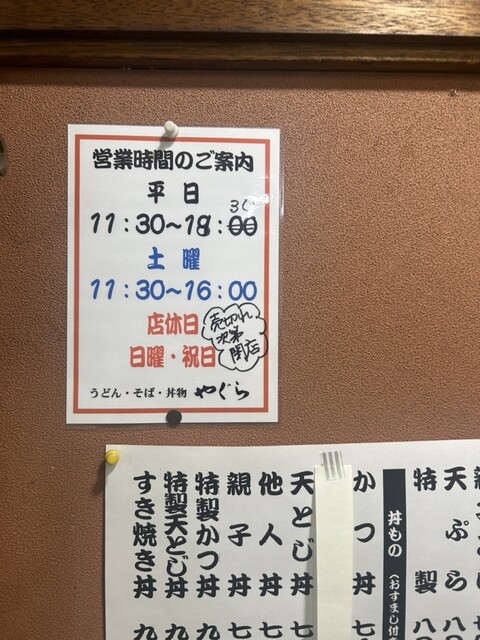 営業時間のご案内
平日
30
11:30~18:00
土曜
11:30~16:00
店休日
日曜・祝日
売切れ
次第
閉店
うどん・そば・丼物 やぐら
天ぷら 八
特製 八
丼もの (おすまし付
かつ丼 七
天とじ丼 七
他人丼 七
親子丼 七
特製かつ丼 九
特製天とじ丼 九
すき焼き丼 九